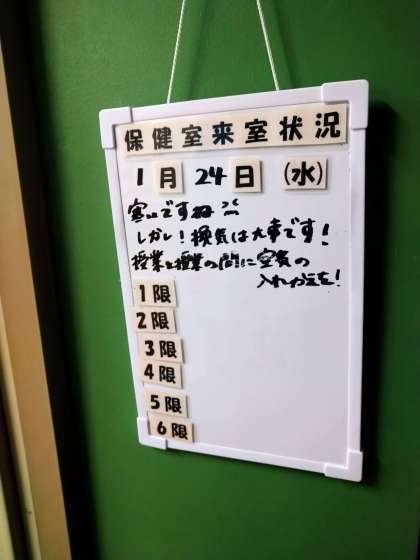 保健室来室状況
1月 24日 (水)
寒いですね
しかし!換気は大事です!
授業と授業の間に空気の
入れかえを!
1限
2限
3限
4限
5限
6限